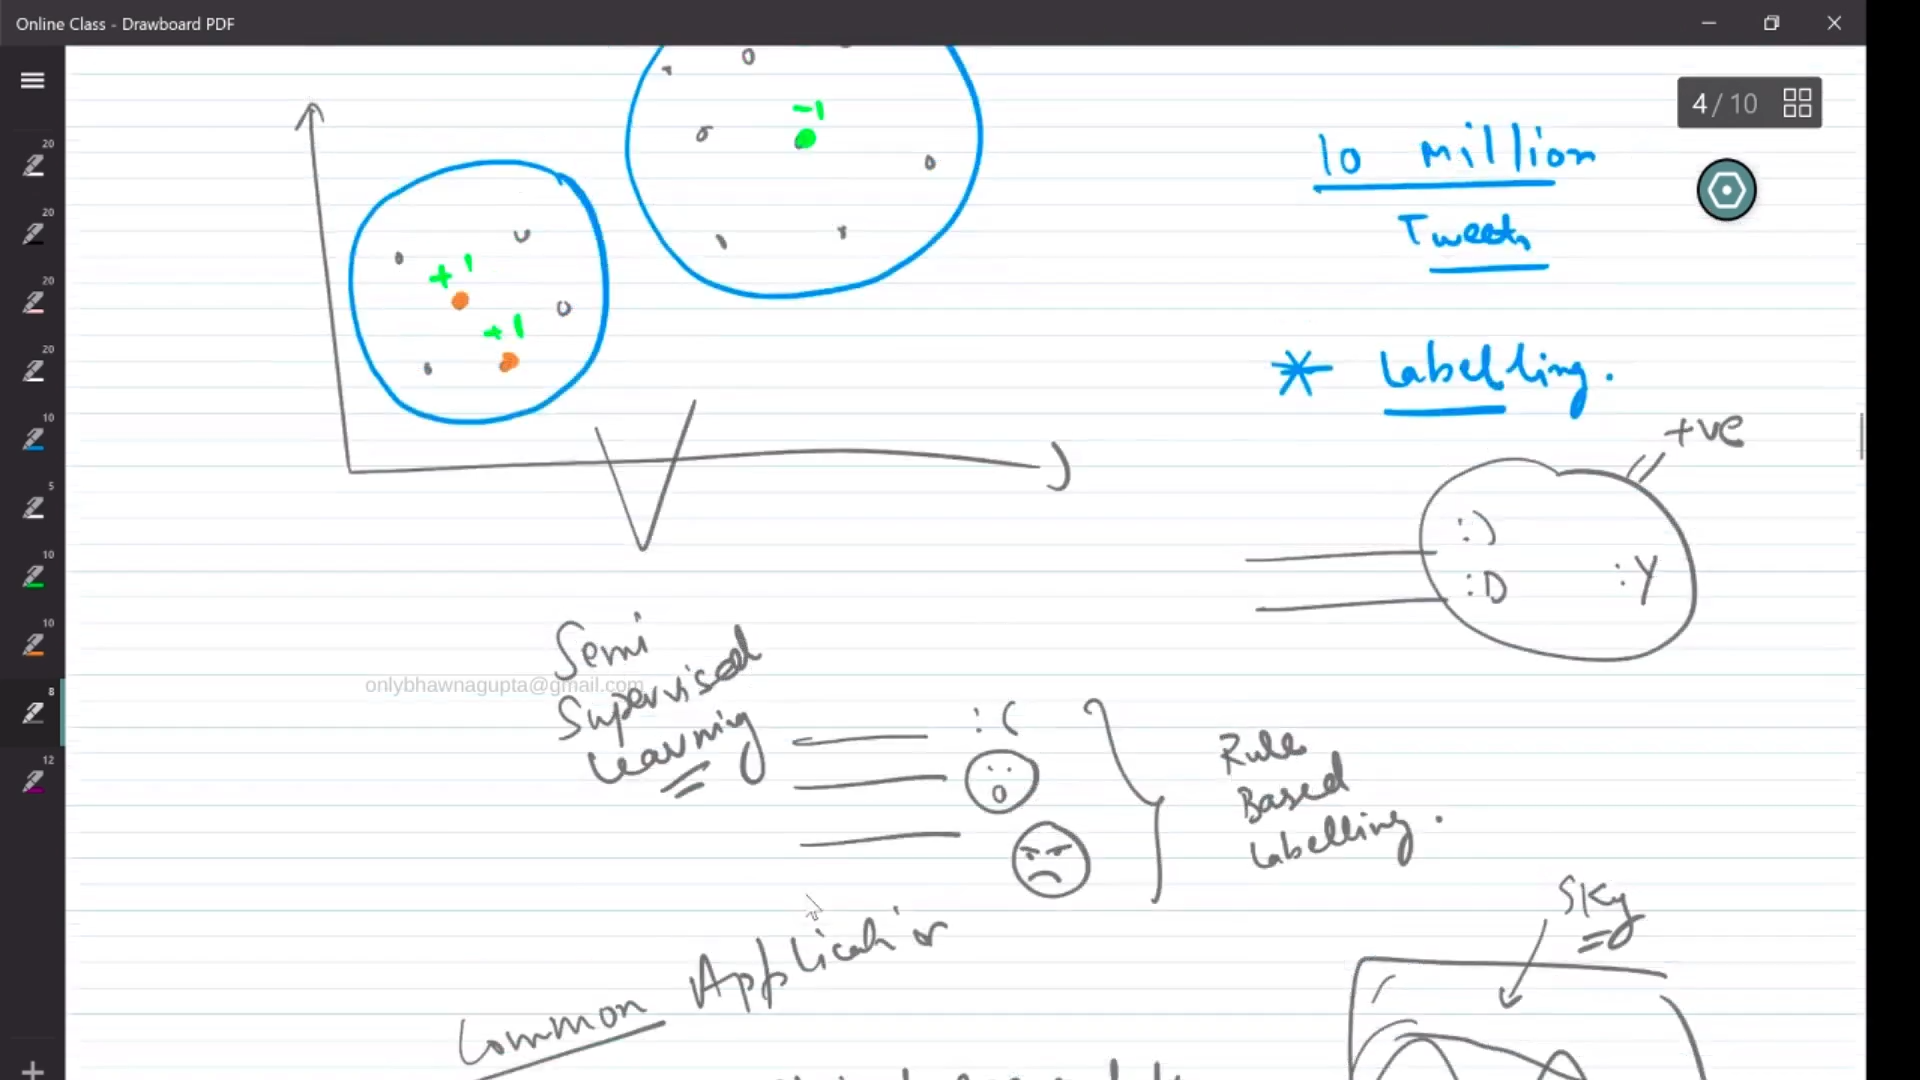 Online Class - Drawboard PDF
4 / 10
20
20
20
20
10
5
10
10
8
12
-1
+1
+1
10 million
Tweets
* Labelling.
+ve
:)
:D
:Y
Semi
Supervised
Learning
onlybhawnagupta@gmail.com
:(
Rule
Based
Labelling.
Sky
Common Application